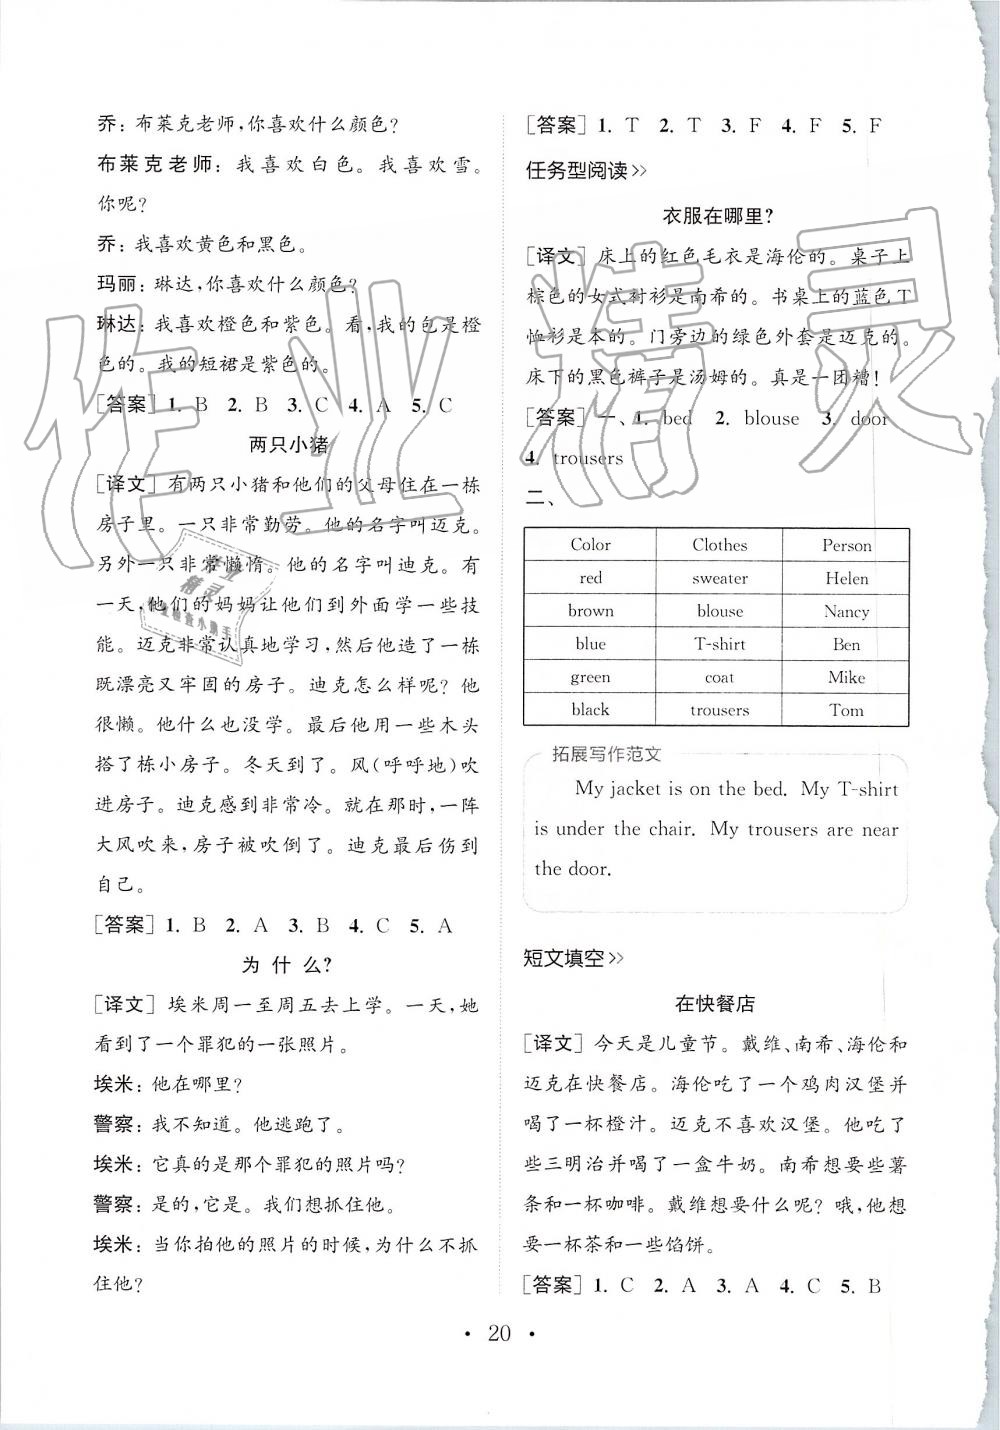 乔：布莱克老师，你喜欢什么颜色？
布莱克老师：我喜欢白色。我喜欢雪。
你呢？
乔：我喜欢黄色和黑色。
玛丽：琳达，你喜欢什么颜色？
琳达：我喜欢橙色和紫色。看，我的包是橙
色的。我的短裙是紫色的。
[答案] 1. B 2. B 3. C 4. A 5. C
两只小猪
[译文] 有两只小猪和他们的父母住在一栋
房子里。一只非常勤劳。他的名字叫迈克。
另外一只非常懒惰。他的名字叫迪克。有
一天，他们的妈妈让他们到外面学一些技
能。迈克非常认真地学习，然后他造了一栋
既漂亮又牢固的房子。迪克怎么样呢？他
很懒。他什么也没学。最后他用一些木头
搭了栋小房子。冬天到了。风（呼呼地）吹
进房子。迪克感到非常冷。就在那时，一阵
大风吹来，房子被吹倒了。迪克最后伤到
自己。
[答案] 1. B 2. A 3. B 4. C 5. A
为什么？
[译文] 埃米周一至周五去上学。一天，她
看到了一个罪犯的一张照片。
埃米：他在哪里？
警察：我不知道。他逃跑了。
埃米：它真的是那个罪犯的照片吗？
警察：是的，它是。我们想抓住他。
埃米：当你拍他的照片的时候，为什么不抓
住他？
[答案] 1. T 2. T 3. F 4. F 5. F
任务型阅读>>
衣服在哪里？
[译文] 床上的红色毛衣是海伦的。桌子上
棕色的女式衬衫是南希的。书桌上的蓝色T
恤衫是本的。门旁边的绿色外套是迈克的。
床下的黑色裤子是汤姆的。真是一团糟！
[答案] 一、1. bed 2. blouse 3. door
4. trousers
二、
Color Clothes Person
red sweater Helen
brown blouse Nancy
blue T-shirt Ben
green coat Mike
black trousers Tom
拓展写作范文
My jacket is on the bed. My T-shirt
is under the chair. My trousers are near
the door.
短文填空>>
在快餐店
[译文] 今天是儿童节。戴维、南希、海伦和
迈克在快餐店。海伦吃了一个鸡肉汉堡并
喝了一杯橙汁。迈克不喜欢汉堡。他吃了
些三明治并喝了一盒牛奶。南希想要些薯
条和一杯咖啡。戴维想要什么呢？哦，他想
要一杯茶和一些馅饼。
[答案] 1. C 2. A 3. A 4. C 5. B
• 20 •
作业精灵
作业
精灵
作业检查小助手